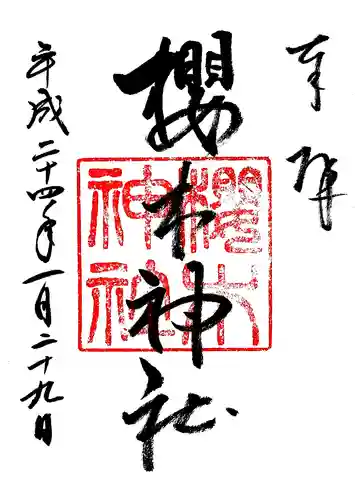 奉拝
櫻木神社
櫻木
神社
平成二十四年一月二十九日